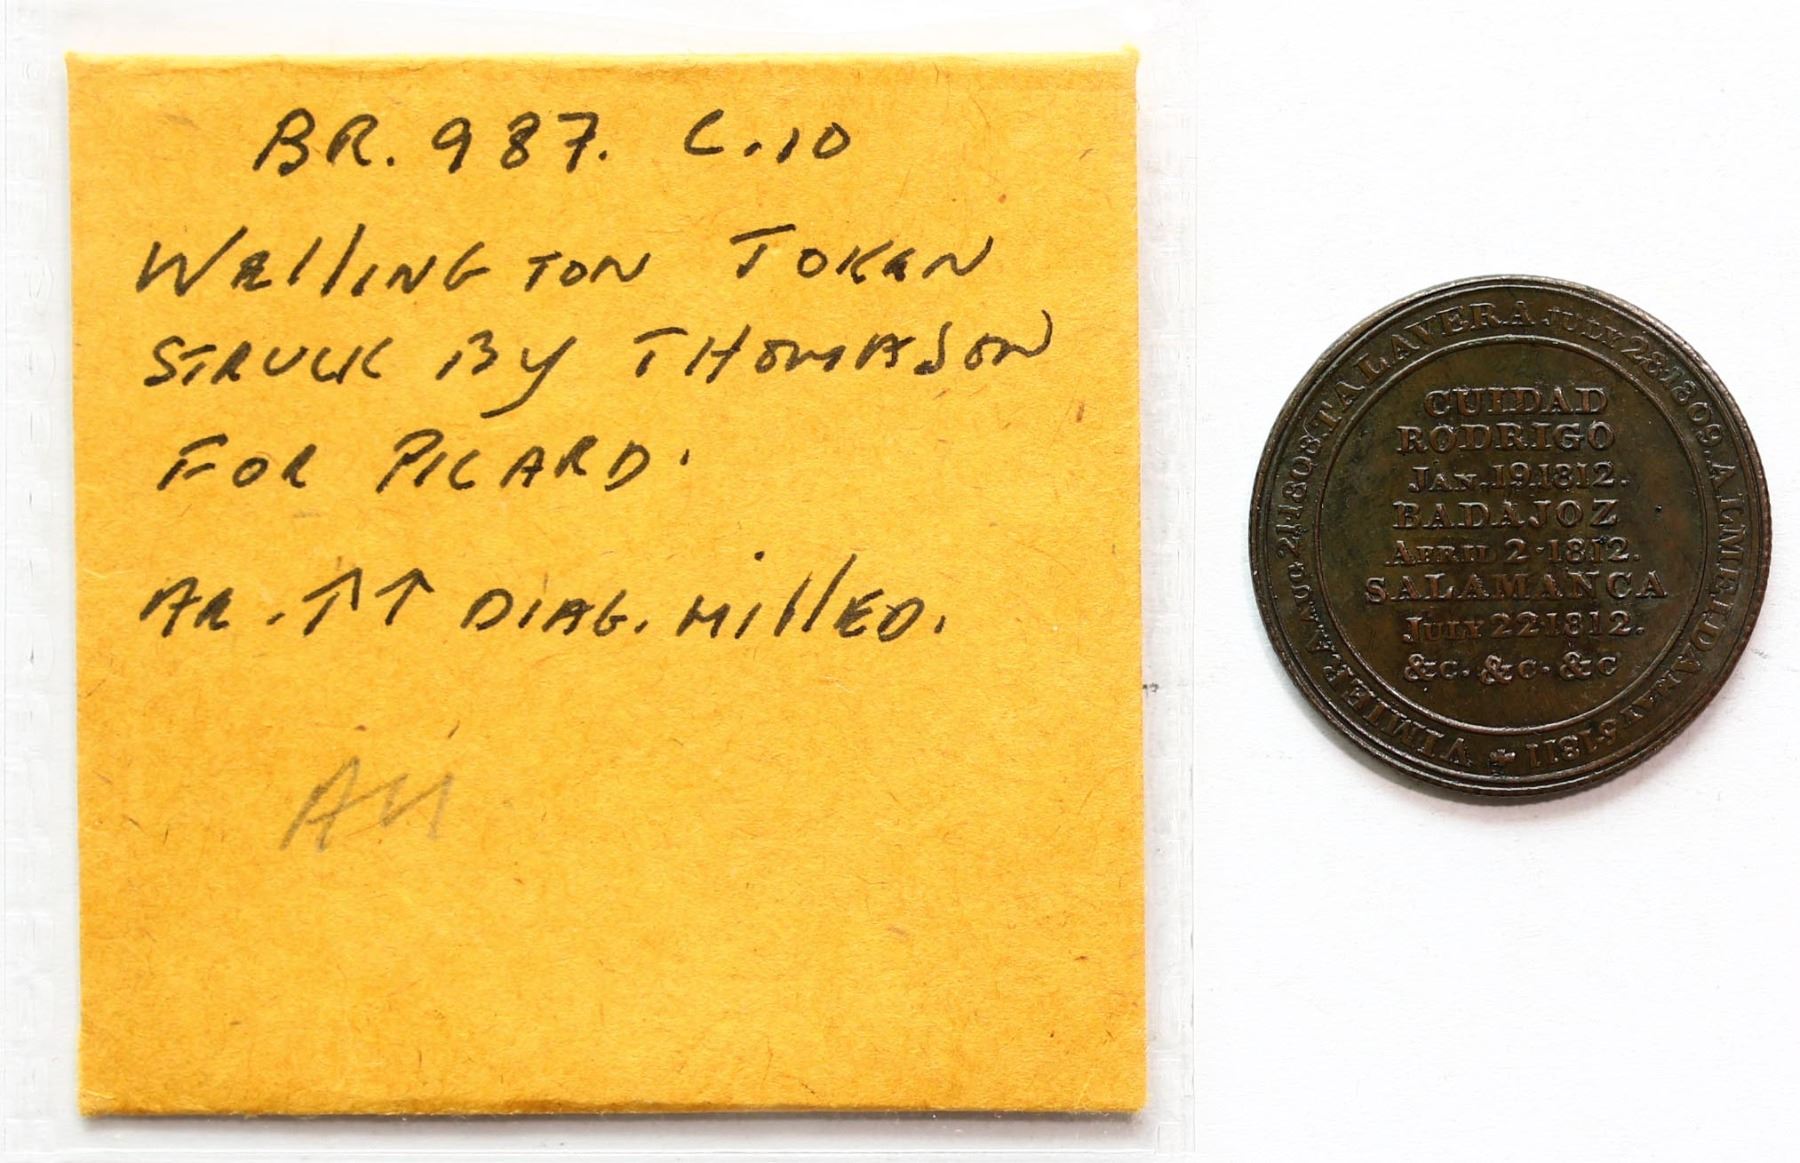 BR. 987. C.10
WEllING TON TOKEN
STRUCK BY THOMASON
FOR PICARD.
AR. ↑↑ DIAG. MillED.
AU
VIMIERA AUG 21 1808 TALAVERA JULY 28 1809. ALMEIDA MAY 5 1811
CUIDAD
RODRIGO
JAN. 19.1812.
BADAJOZ
APRIL 2·1812.
SALAMANCA
JULY 22·1812.
&C. &C. &C